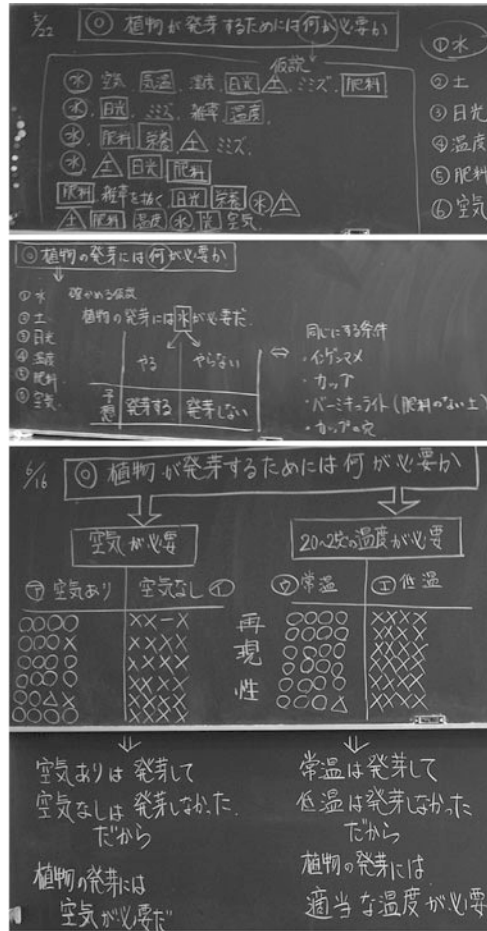 5/22 ◎ 植物が発芽するためには何が必要か
仮説
水 空気 気温 温度 日光 土 ミミズ 肥料
水 日光 ミミズ 雑草 温度
水 肥料 栄養 土 ミミズ
水 土 日光 肥料
肥料 雑草を抜く 日光 栄養 水 土
土 肥料 温度 水 光 空気
①水
②土
③日光
④温度
⑤肥料
⑥空気
◎ 植物の発芽には何が必要か
①水
②土
③日光
④温度
⑤肥料
⑥空気
確かめる仮説
植物の発芽には水が必要だ.
やる やらない
予想 発芽する 発芽しない
⇔ 同じにする条件
・インゲンマメ
・カップ
・バーミキュライト(肥料のない土)
・カップの穴
6/16 ◎ 植物が発芽するためには何が必要か
空気が必要 20~25℃の温度が必要
㋐空気あり 空気なし㋑ ㋒常温 ㋓低温
○○○○ ××-× ○○○○ ××××
再現性
空気ありは発芽して
空気なしは発芽しなかった
だから
植物の発芽には
空気が必要だ
常温は発芽して
低温は発芽しなかった
だから
植物の発芽には
適当な温度が必要